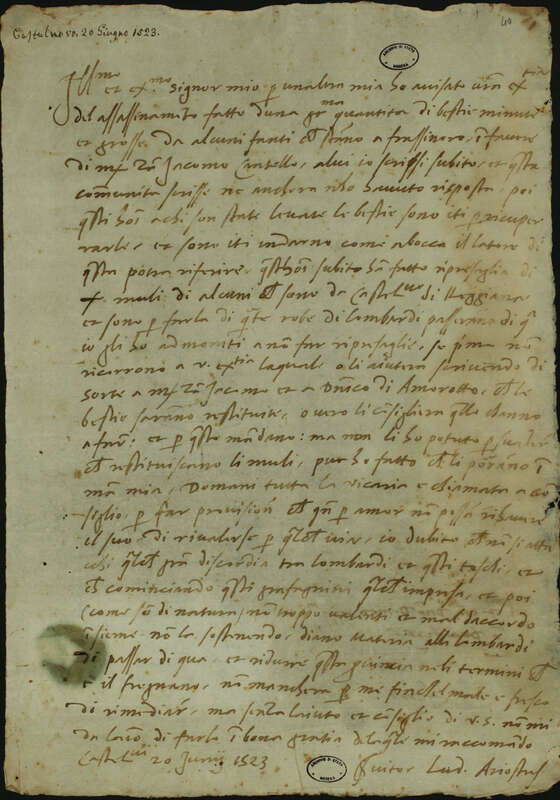 Castelnovo, 20 Giugno 1523.
40
ARCHIVIO DI STATO MODENA
Ill.mo
et ex.mo Signor mio p unaltra mia ho avisato vra ex.tia
del assassinamto fatto duna gr.ma quantita di bestie minute
et grosse da alcuni fanti ch stano a frassinoro, i favore
di m Zā Jacomo Cantello, a lui io scrissi subito, et qsta
comunita scrisse ne anchora nho havuto risposta, poi
qsti hoī a chi son state levate le bestie sono iti p ricuper
rarle, et sono iti indarno come a bocca il latore di
qsta potra riferire, qsti hoī subito hā fatto ripresaglia di
x muli di alcuni ch sono da Castel di Reggiana
et sono p farla di qte robe di lombardi passerāno di q
io gli ho admoniti a nō far ripresaglie, se pma nō
ricorrono a v. ex.tia laquale o li aiutera scrivendo di
sorte a m Zā Jacomo et a Dnico di Amorotto, ch le
bestie sarāno restituite, o vero li cōsigliera qllo ch hāno
a fare, et p qsto mādano: ma non li ho potuto p suader
ch restituiscano li muli, pur ho fatto ch li porāno ī
mā mia, Domani tutta la vicaria e chiamata a cō
seglio, p far provision ch qn p amor nō possā rihavere
il suo di rivalerse p qlch via, io dubito ch nō si attac
chi qlch grā discordia tra lombardi et qsti toschi, et
ch cominciando qsti grafagnini qlch impresa, et poi
(come sō di natura) nō troppo valenti et mal daccordo
īsieme nō la sostenendo, diano materia alli lombardi
di passar di qua, et ridure qsta pvincia neli termini ch
e il fregnano, nō manchera p me finchel male e fresco
di rimediar, ma senza laiuto et cōsiglio di v. s. nō mi
da laio di farlo ī bona gratia delaqle mi raccomādo
Castel.vi 20 Junij 1523
ARCHIVIO DI STATO MODENA
Svitor Lud. Ariostus